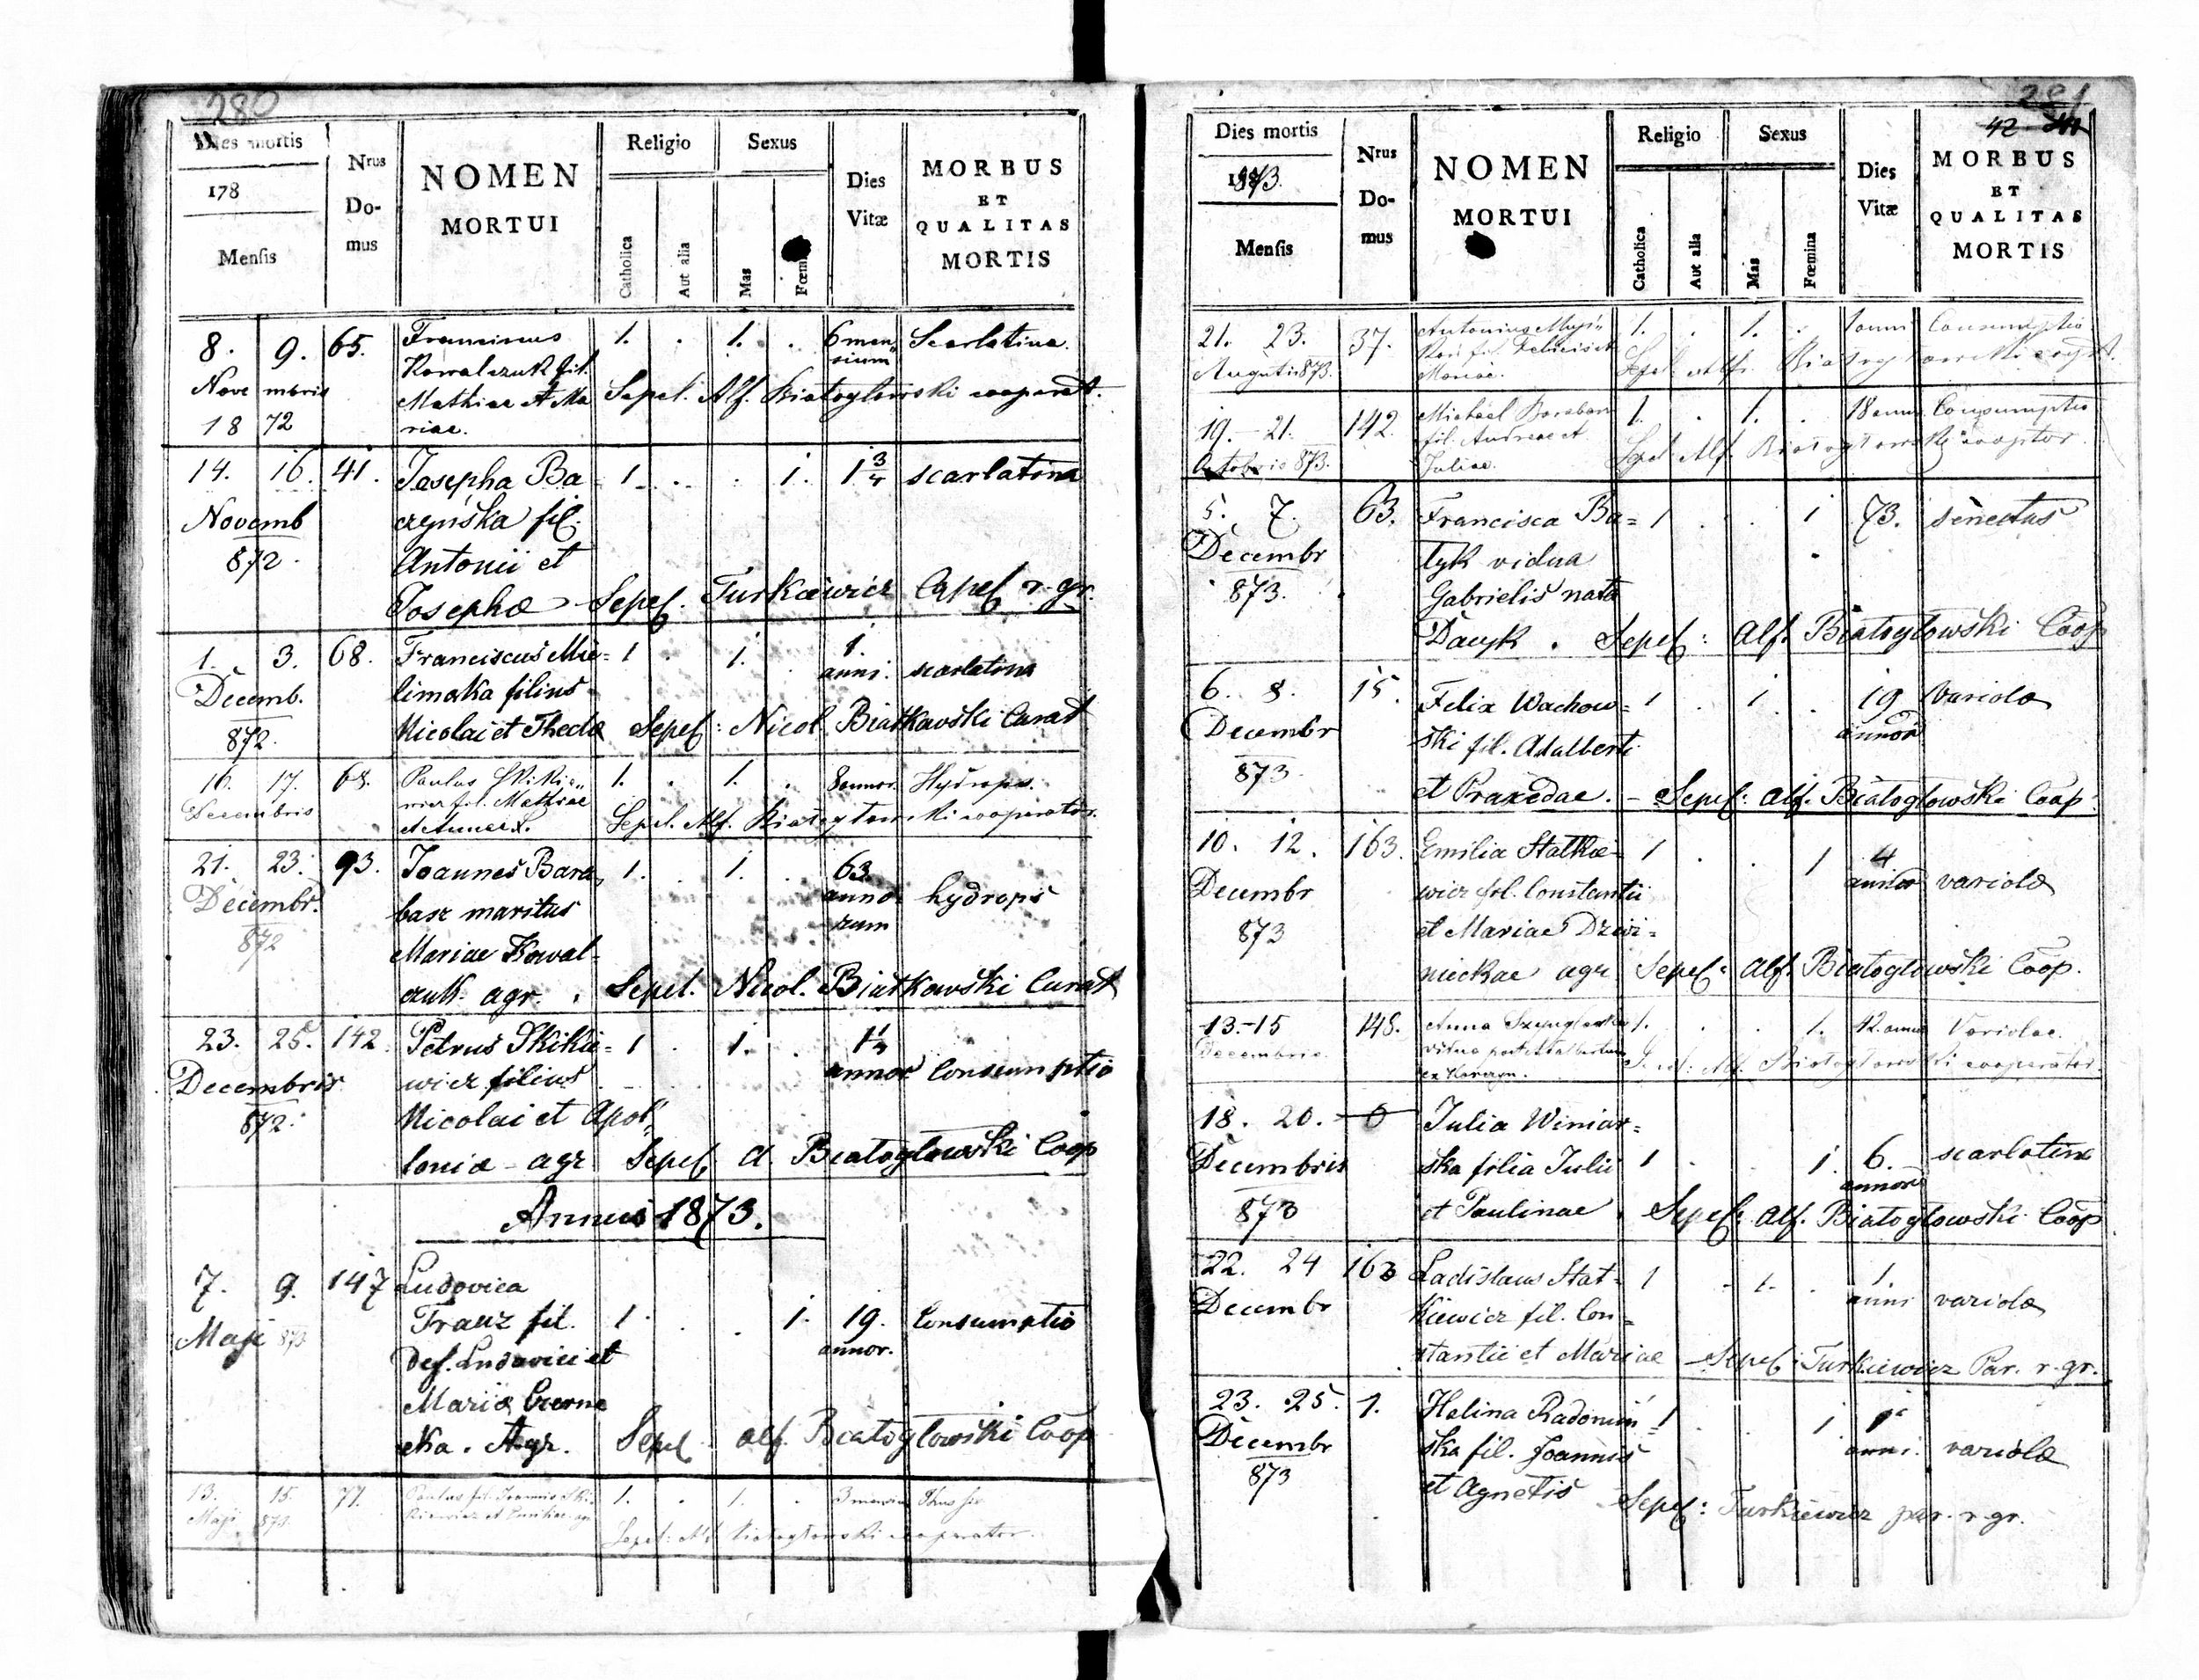 280
Dies mortis
178
Mensis
Nrus
Do-
mus
NOMEN
MORTUI
Religio
Catholica
Aut alia
Sexus
Mas
Fœmi
Dies
Vitæ
MORBUS
ET
QUALITAS
MORTIS
8. 9. 65. Franciscus 1. . 1. . 6 men Scarlatina.
Novembris Kowalczuk fil. sium
1872 Mathiae et Ma Sepel. Alf. Białogłowski cooperat.
riae.
14. 16. 41. Josepha Ba- 1 . . 1. 1 3/4 scarlatina
Novemb czyńska fil.
872. Antonii et
Josephæ Sepel. Turkiewicz Capel r. gr.
1. 3. 68. Franciscus Mie= 1 . 1. . 1. anni. scarlatina
Decemb. limąka filius
872. Nicolai et Theclæ Sepel: Nicol Białkowski Curat
16. 17. 68. Paulus Skikie„ 1. . 1. . 8 annor. Hydrops.
Decembris wicz fil. Mathiae
et Annae L. Sepel. Alf. Białogłowski cooperator.
21. 23. 93. Joannes Bara 1. . 1. . 63. anno hydrops
Decembr. basz maritus rum
872 Mariae Kowal-
czuk. agr. Sepel. Nicol. Białkowski Curat
23. 25. 142 Petrus Skikie= 1 . 1. .
Decembris wicz filius annor Consumptio
872. Nicolai et Apol„
loniæ - agr Sepel A. Białogłowski Coop
Annus 1873.
7. 9. 147 Ludovica
Maji 873 Franz fil. 1. . . 1. 19. Consumptio
Def. Ludovici et annor.
Mariæ Czerne
cka. Agr. Sepel Alf. Białogłowski Coop
13. 15. 77. Paulus fil. Joannis Ski- 1. . 1. . 3 mensium
Maji 873. kiewicz et
Sepel: Alf. Białogłowski cooperator.
281
42
Dies mortis
1873.
Mensis
Nrus
Do-
mus
NOMEN
MORTUI
Religio
Catholica
Aut alia
Sexus
Mas
Fœmina
Dies
Vitæ
MORBUS
ET
QUALITAS
MORTIS
21. 23. 37. Antonius 1. . 1. . 1 anni Consumptio
Augusti 873. fil. Felicis et Sepel. Alf. Białogłowski
Mariæ.
19. 21. 142. Michael Barabasz 1. . 1. . 18 annor. Consumptio
Octobris 873. fil. Andreae et Sepel Alf. Białogłowski cooptor.
Juliae.
5. 7. 63. Francisca Ba= 1 . . 1 73. senectus
Decembr tyk vidua
873. Gabrielis nata
Dacyk. Sepel: Alf. Białogłowski Coop
6. 8. 15. Felix Wachow= 1 . 1 . 19 Variolæ
Decembr ski fil. Adalberti annor
873 et Praxedae. - Sepel: Alf. Białogłowski Coop
10. 12. 163. Emilia Statkie- 1 . . 1 4 annor variolæ
Decembr wicz fil. Constantii
873 et Mariae Dzwi=
nieckae agr Sepel: Alf. Białogłowski Coop.
13.-15 148. Anna 1. . . 1. 42. annor Variolae.
Decembris vidua post Adalbertum
Alf. Białogłowski cooperator.
18. 20. - 0 Julia Winiar=
Decembris ska filia Julii 1 . . 1. 6. annor scarlatina
873 et Paulinae. Sepel: Alf. Białogłowski Coop
22. 24 163 Ladislaus Stat= 1 . 1. . 1. anni variolæ
Decembr kiewicz fil. Con=
stantii et Mariae - Sepel: Turkiewicz Par. r. gr.
23. 25. 1. Halina Radomiń 1 . . 1 1 anni. variolæ
Decembr ska fil. Joannis
873 et Agnetis Sepel: Turkiewicz par. r. gr.